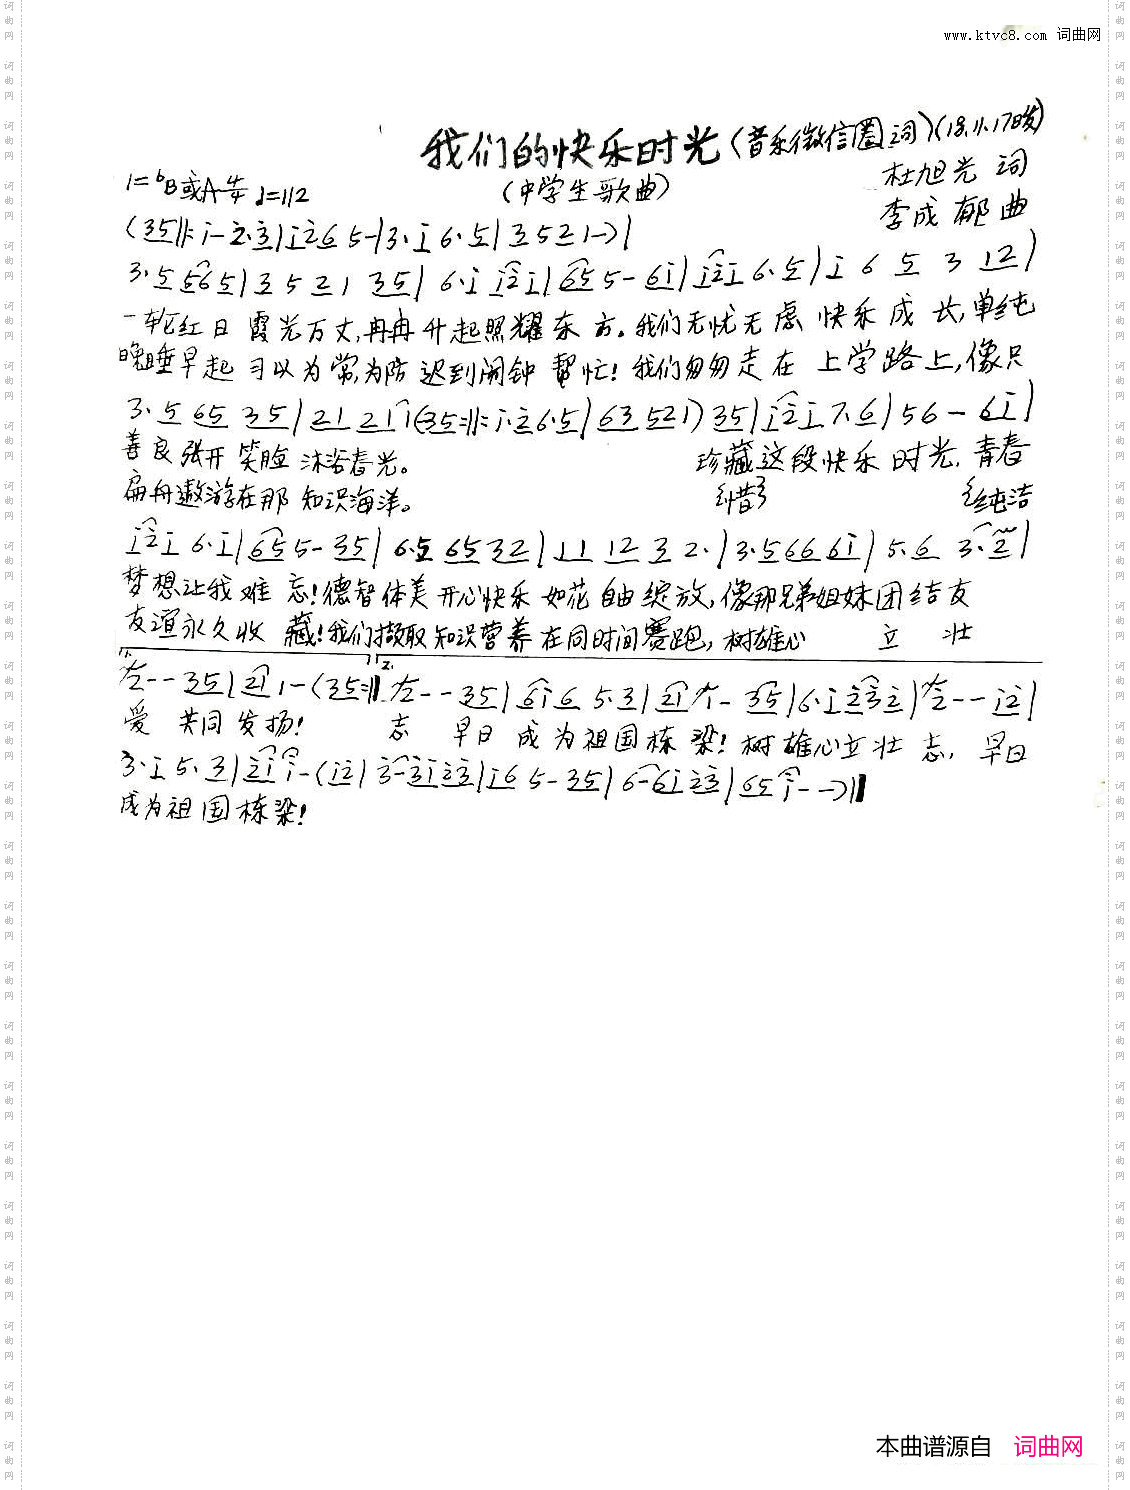 www.ktvc8.com 词曲网
我们的快乐时光(音乐微信圈词)(18.11.17日发)
1=ᵇB或A 4/4 ♩=112 (中学生歌曲) 杜旭光 词
李成郁 曲
(35‖: i - 2·3 | i 2 6 5 - | 3·i 6·5 | 3 5 2 1 - ) |
3·5 565 | 3 5 2 1 35 | 6·i i2i | 65 5 - 6i | i2i 6·5 | i 6 5 3 12 |
一轮红日 霞光万丈,冉冉升起照耀东方。我们无忧无虑 快乐成长,单纯
晚睡早起 习以为常,为防迟到闹钟帮忙!我们匆匆走在 上学路上,像只
3·5 65 35 | 21 21 1 (35:‖: i·2 6·5 | 63 521) 35 | i2i 7·6 | 56 - 6i |
善良张开笑脸 沐浴春光。 珍藏这段快乐时光,青春
扁舟遨游在那 知识海洋。 {惜} {纯洁
i2i 6·i | 65 5 - 35 | 6·5 65 32 | 11 12 3 2· | 3·5 66 6i | 5·6 3·2 |
梦想让我难忘!德智体美开心快乐 如花自由绽放,像那兄弟姐妹团结友
友谊永久收藏!我们撷取知识营养 在同时间赛跑,树雄心 立 壮
1. 2 - - 35 | 21 1 - (35:‖ 2. 2 - - 35 | 6i6 5·3 | 21 1 - 35 | 6·i 232 | 2 - - i2 |
爱 共同发扬! 志 早日 成为祖国栋梁!树雄心立壮志,早日
3·i 5·3 | 2i i - (i2 | 3 - 3i 23 | i6 5 - 35 | 6 - 6i 23 | 65 i - - ) ‖
成为祖国栋梁!
本曲谱源自 词曲网